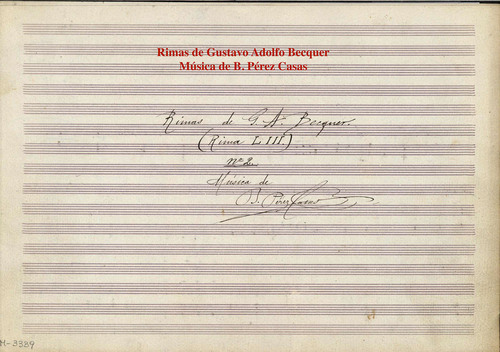 Rimas de Gustavo Adolfo Becquer
Música de B. Pérez Casas
Rimas de G. A. Becquer.
(Rima LIII.)
Nº 2.
Música de
B. Pérez Casas
M-3389